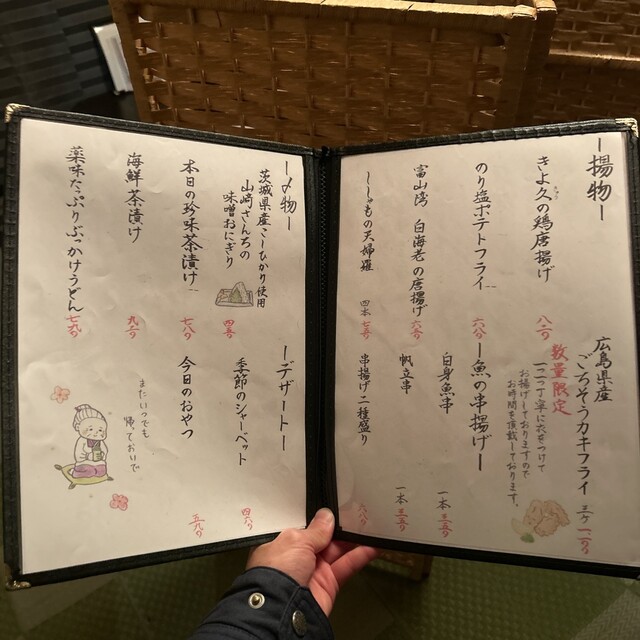 ー揚物ー
きよ久の鶏唐揚げ
八八〇
のり塩ポテトフライ
六八〇
富山湾 白海老の唐揚げ
六八〇
ししゃもの天婦羅
四本 七五〇
広島県産
ごちそうカキフライ 三ヶ
数量限定
一つ一つ丁寧に衣をつけて
お揚げしておりますので
お時間を頂戴しております。
ー魚の串揚げー
白身魚串
一本 三五〇
帆立串
一本 三五〇
串揚げ二種盛り
六八〇
ー〆物ー
茨城県産こしひかり使用
山崎さんちの
味噌おにぎり
本日の珍味茶漬け
海鮮茶漬け
薬味たっぷりぶっかけうどん
ーデザートー
季節のシャーベット
今日のおやつ
またいつでも
帰っておいで